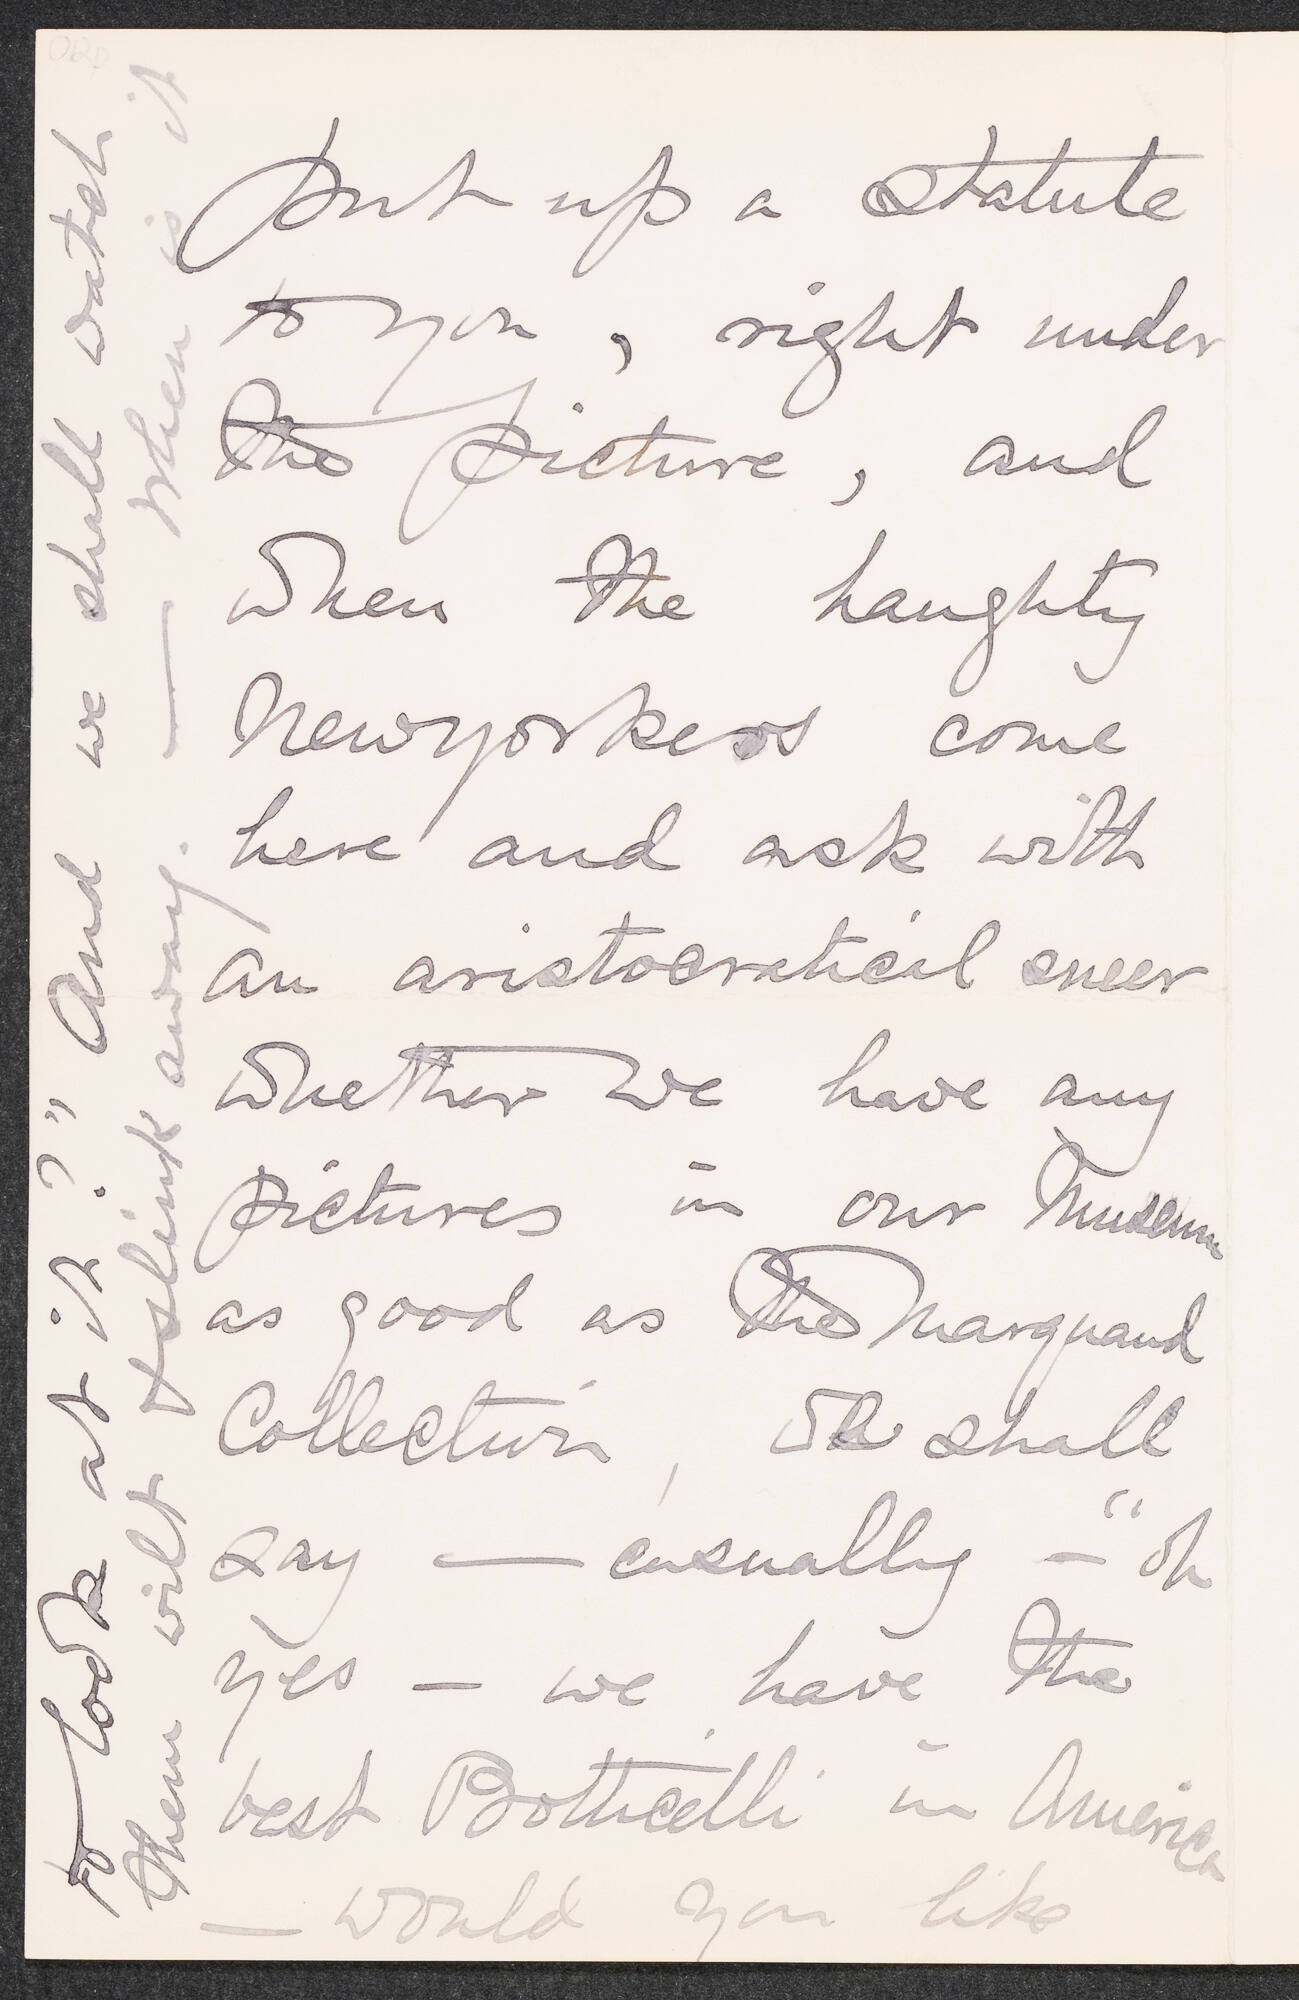 put up a statute
to you, right under
the picture, and
when the haughty
Newyorkers come
here and ask with
an aristocratical sneer
whether we have any
pictures in our Museum
as good as the Marquand
Collection, We shall
say — casually — "Oh
yes — we have the
best Botticelli in America
— would you like
to look at it?" And we shall watch
them wilt & slink away. — When is it